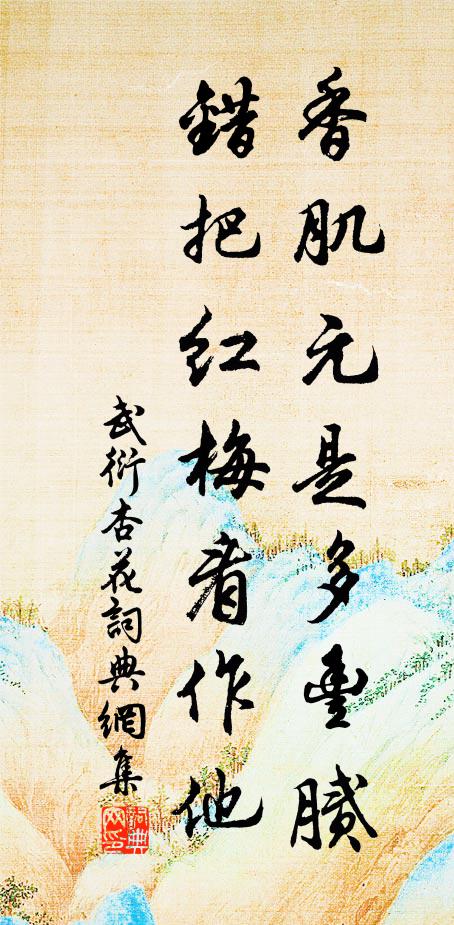 香肌元是多豐膩
錯把紅梅看作他
武衍杏花詞典網集
詞典网印